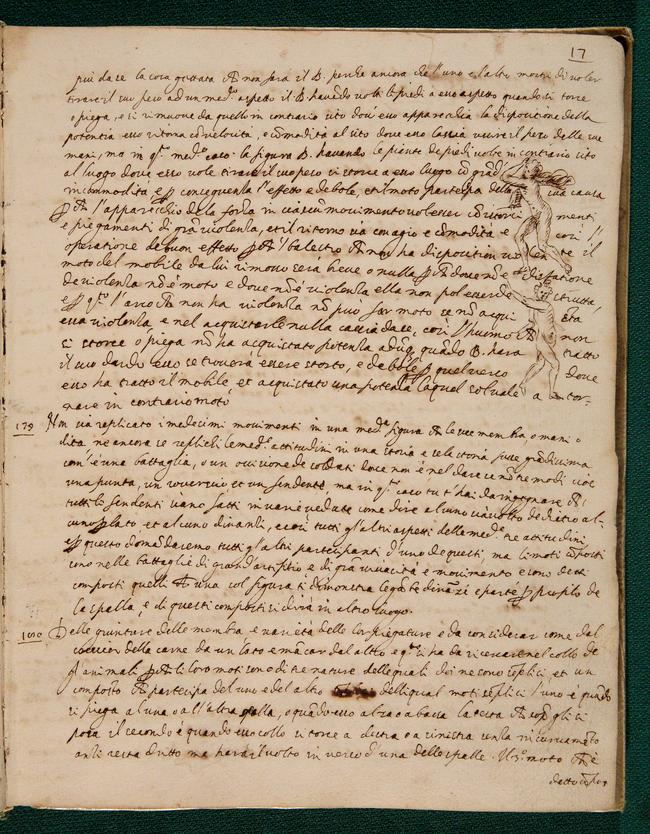 17
più da se la cosa gettata che non farà il B. perche ancora che l'uno e l'altro mostri di voler
tirare il suo peso ad un med.º aspetto il B havendo volti li piedi a esso aspetto quando si torce
o piega, e si rimuove da quello in contrario sito dov'esso apparecchia la dispositione della
potentia esso ritorna con velocità, o comodità al sito dove esso lascia uscire il peso delle sue
mani, mo in q.º med.º caso la figura B. havendo le piante de piedi volte in contrario sito
al luogo dove esso vole tirare il suo peso si storce a esso luogo con grad
incommodità e p conseguenza l'effetto e debole, et il moto partecipa della sua causa
p che l'apparecchio de la forza in ciascun movimento vol esser con storci menti
e piegamenti di gran violenza, et il ritorno sia con agio e commodità e così l'
operatione ha buon effetto p che l'balestro che non ha disposition violen te il
moto del mobile da lui rimosso serà breve o nulla p che dove non è disfatione
de violenza nõ è moto e dove nõ è violenza ella non pol essere destrutta,
e p q.º l'arco che non ha violenza nõ può far moto se nõ acqui sta
essa violenza, e nel acquistarla nulla caccia da se, così l'huomo che non
si storce o piega nõ ha acquistato potenza adūq quādo B. hara tratto
il suo dardo esso se trouera essere storto, e debole p quel verso dove
esso ha tratto il mobile, et acquistato una potenza laqual sol vale a tor-
nare in contrario moto
179 Non sia replicato i medesimi movimenti in una med.ª figura che le sue membra, o mani o
dita ne ancora se replichi le med.ª attitudini in una storia e se la storia fusse grādissima
com'è una battaglia, o un occisione de soldati dove non è nel dare se nō tre modi cioè
una punta, un roversio et un fendente ma in q.º caso tu t'hai da ingegnare che
tutti li fendenti siano fatti in varie vedute come dire alcuno sia volto de dietro al-
cuno p lato et alcuno dinanzi, e così tutti gl'altri aspetti delle med.e tre attitudini
e p questo domādaremo tutti gl'altri partecipanti d'uno de questi, ma li moti cōposti
sono nelle battaglie di grand'artifitio e di grā vivacità e movimento e sono detti
composti quelli che una sol figura ti dimostra le gābe dināzi e parte p profilo de
la spalla, e di questi composti si dirà in altro luogo.
180 Delle gionture delle membra e varietà delle lor piegature e da considerar come dal
della carne da un lato e mācar dal altro e q.º s'ha da ricercare nel collo de
gl'animali p che li loro moti sono di tre nature delle quali doi ne sono sēplici et un
composto che partecipa del uno e del altro delli quai moti sēplici l'uno e quādo
si piega al una o all'altra spalla, o quādo esso alza o abassa la testa che sop gli si
posa il secondo è quando esso collo si torce a destra o a sinistra senza incurvamēto
anzi resta dritto ma harà il volto in verso d'una delle spalle. Il 3.º moto che è
detto cōpos.